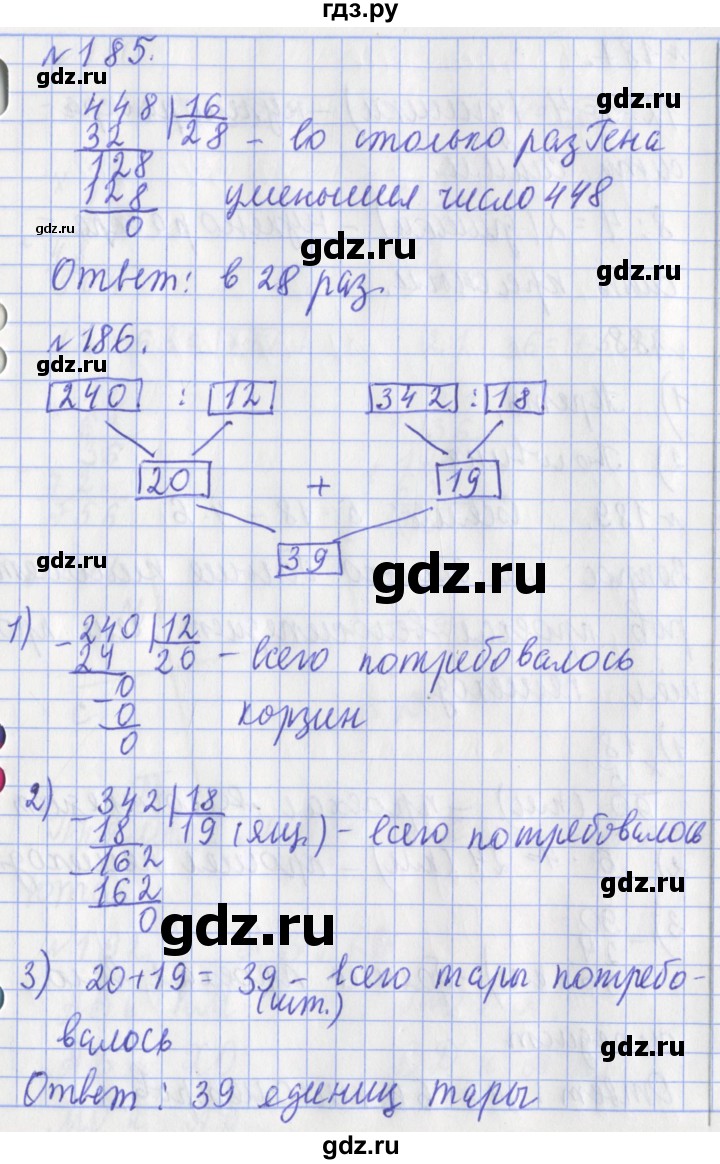 гдз.ру
№185.
gdz.ru
gdz.ru
448 | 16
32 28 - во столько раз Гена
128
128 уменьшил число 448
0
gdz.ru
gdz.ru
gdz.ru
Ответ: в 28 раз.
№186.
gdz.ru
gdz.ru
240 : 12 342 : 18
20 + 19
39
gdz.ru
gdz.ru
1) - 240 | 12
24 20 - всего потребовалось
- 0
0 корзин
0
gdz.ru
gdz.ru
2) - 342 | 18
18 19 (ящ.) - всего потребовалось
- 162
162
0
gdz.ru
gdz.ru
3) 20+19= 39 - всего тары потребо-
(шт.)
валось
gdz.ru
Ответ: 39 единиц тары
gdz.ru